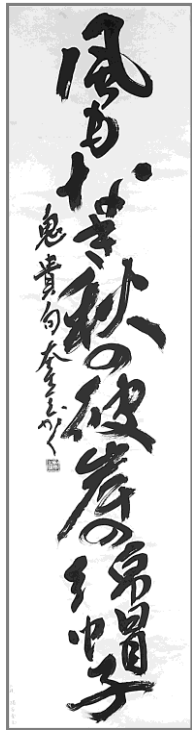 風もなき秋の彼岸の綿帽子
鬼貫句